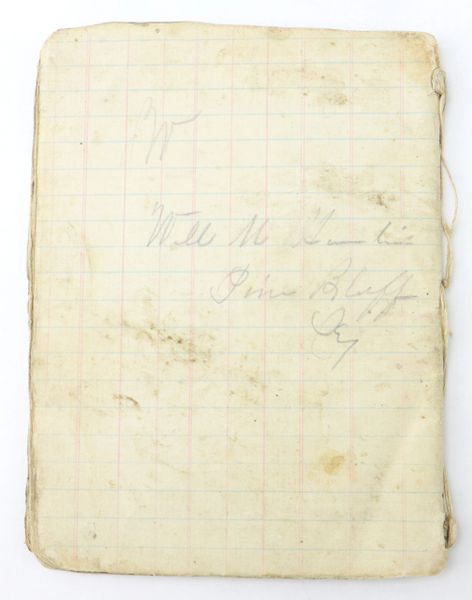 W
Will M
Pine Bluff
Ky